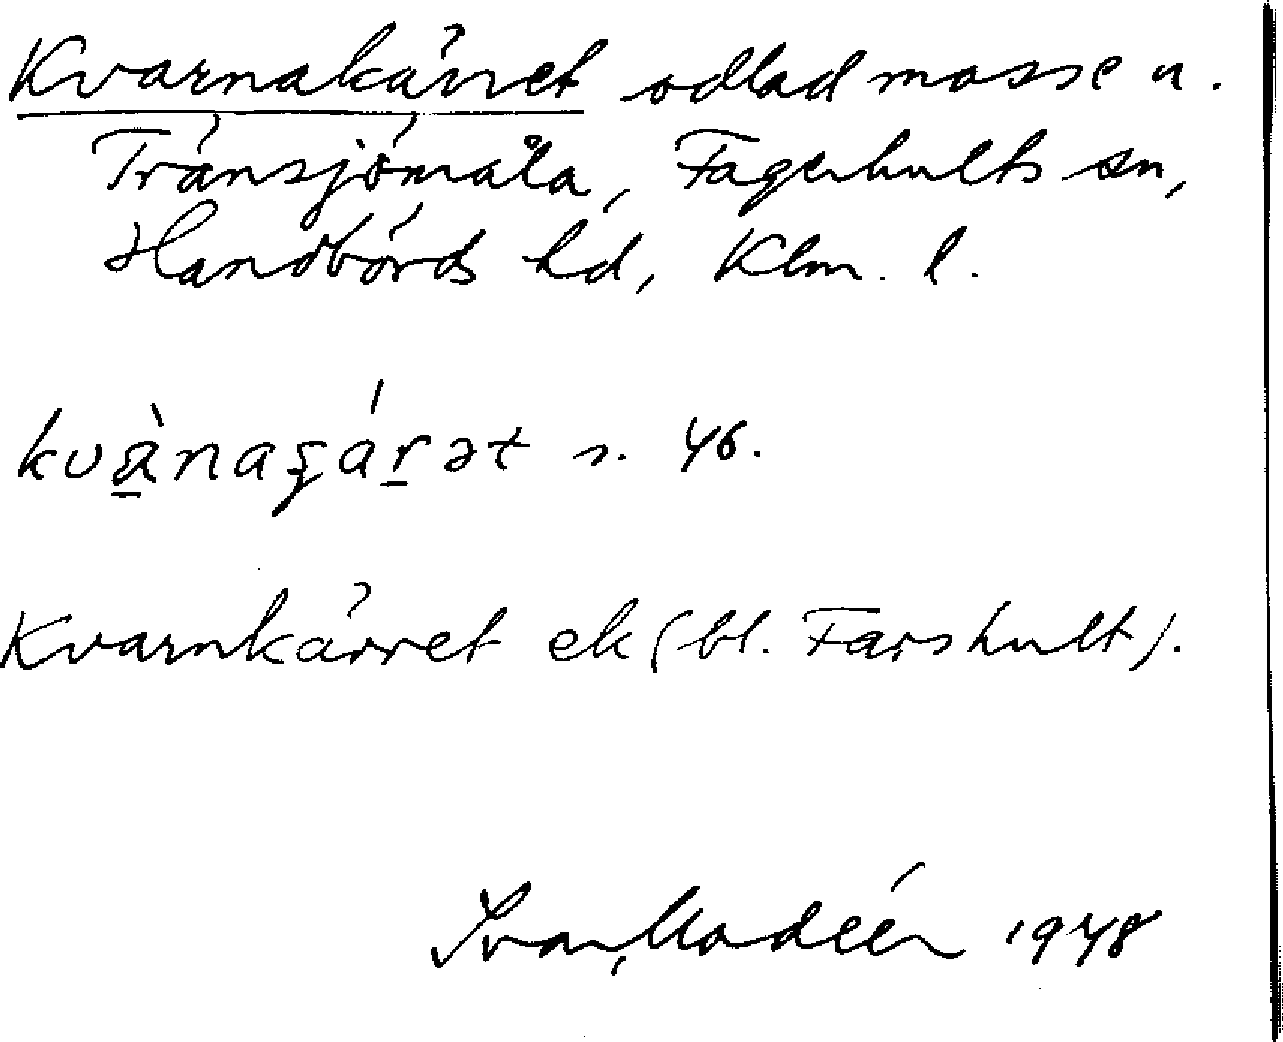 Kvarnakärret odlad mosse n.
Tränsjömåla, Fagerhults sn,
Handbörds hd, Klm. l.
s. 46.
Kvarnkärret ek (bl. Farshult).
Ivar Modéer 1948